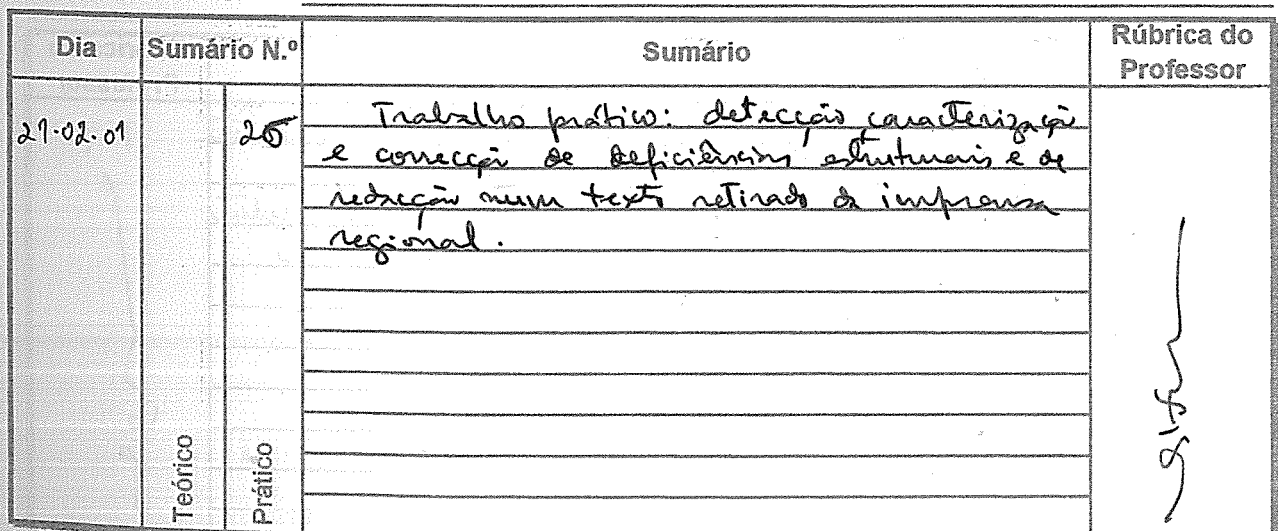 Dia Sumário N.º Sumário Rúbrica do Professor
21-02-01
Trabalho prático: detecção, caracterização
e correcção de deficiências estruturais e de
redacção num texto retirado da imprensa
regional.
Teórico
Prático